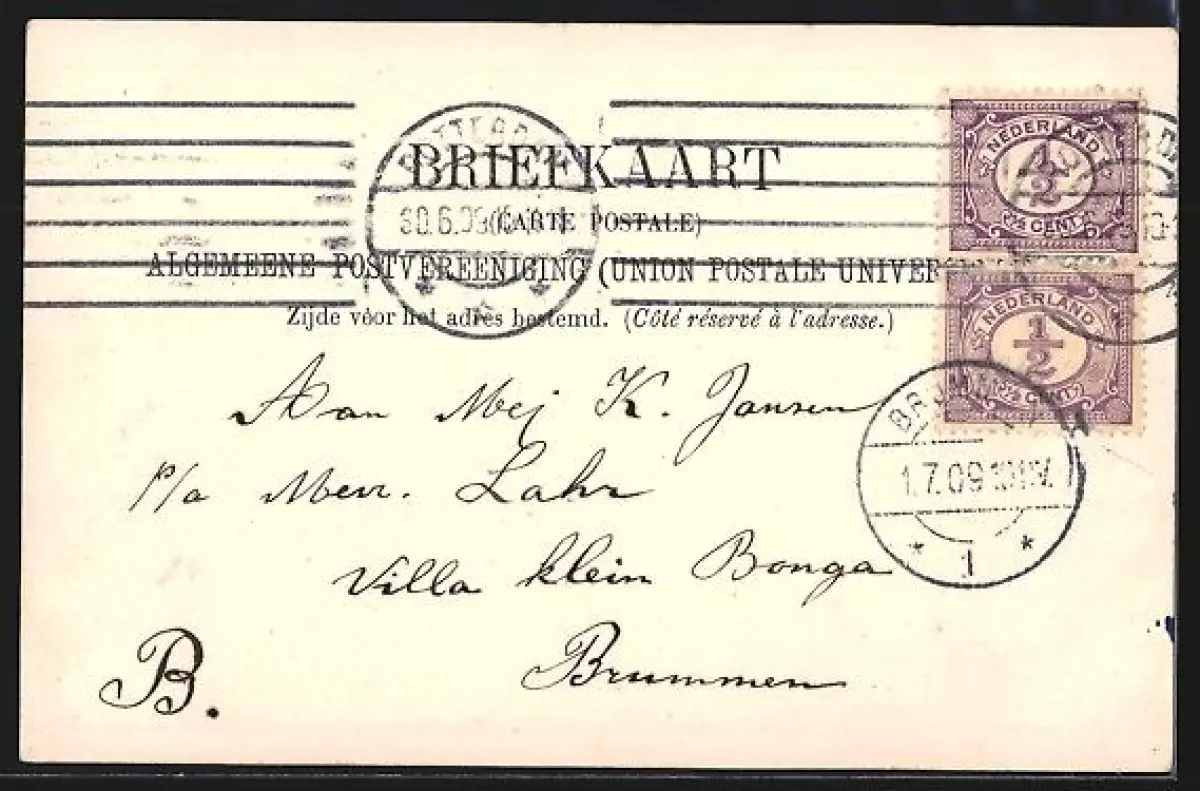 BRIEFKAART
(CARTE POSTALE)
ALGEMEENE POSTVEREENIGING (UNION POSTALE UNIVER
Zijde vóór het adres bestemd. (Côté réservé à l'adresse.)
NEDERLAND
1/2
½ CENT
NEDERLAND
1/2
½ CENT
1.7.09
* 1 *
Aan Mej K. Jansen
p/a Mevr. Lahr
Villa klein Bonga
Brummen
B.